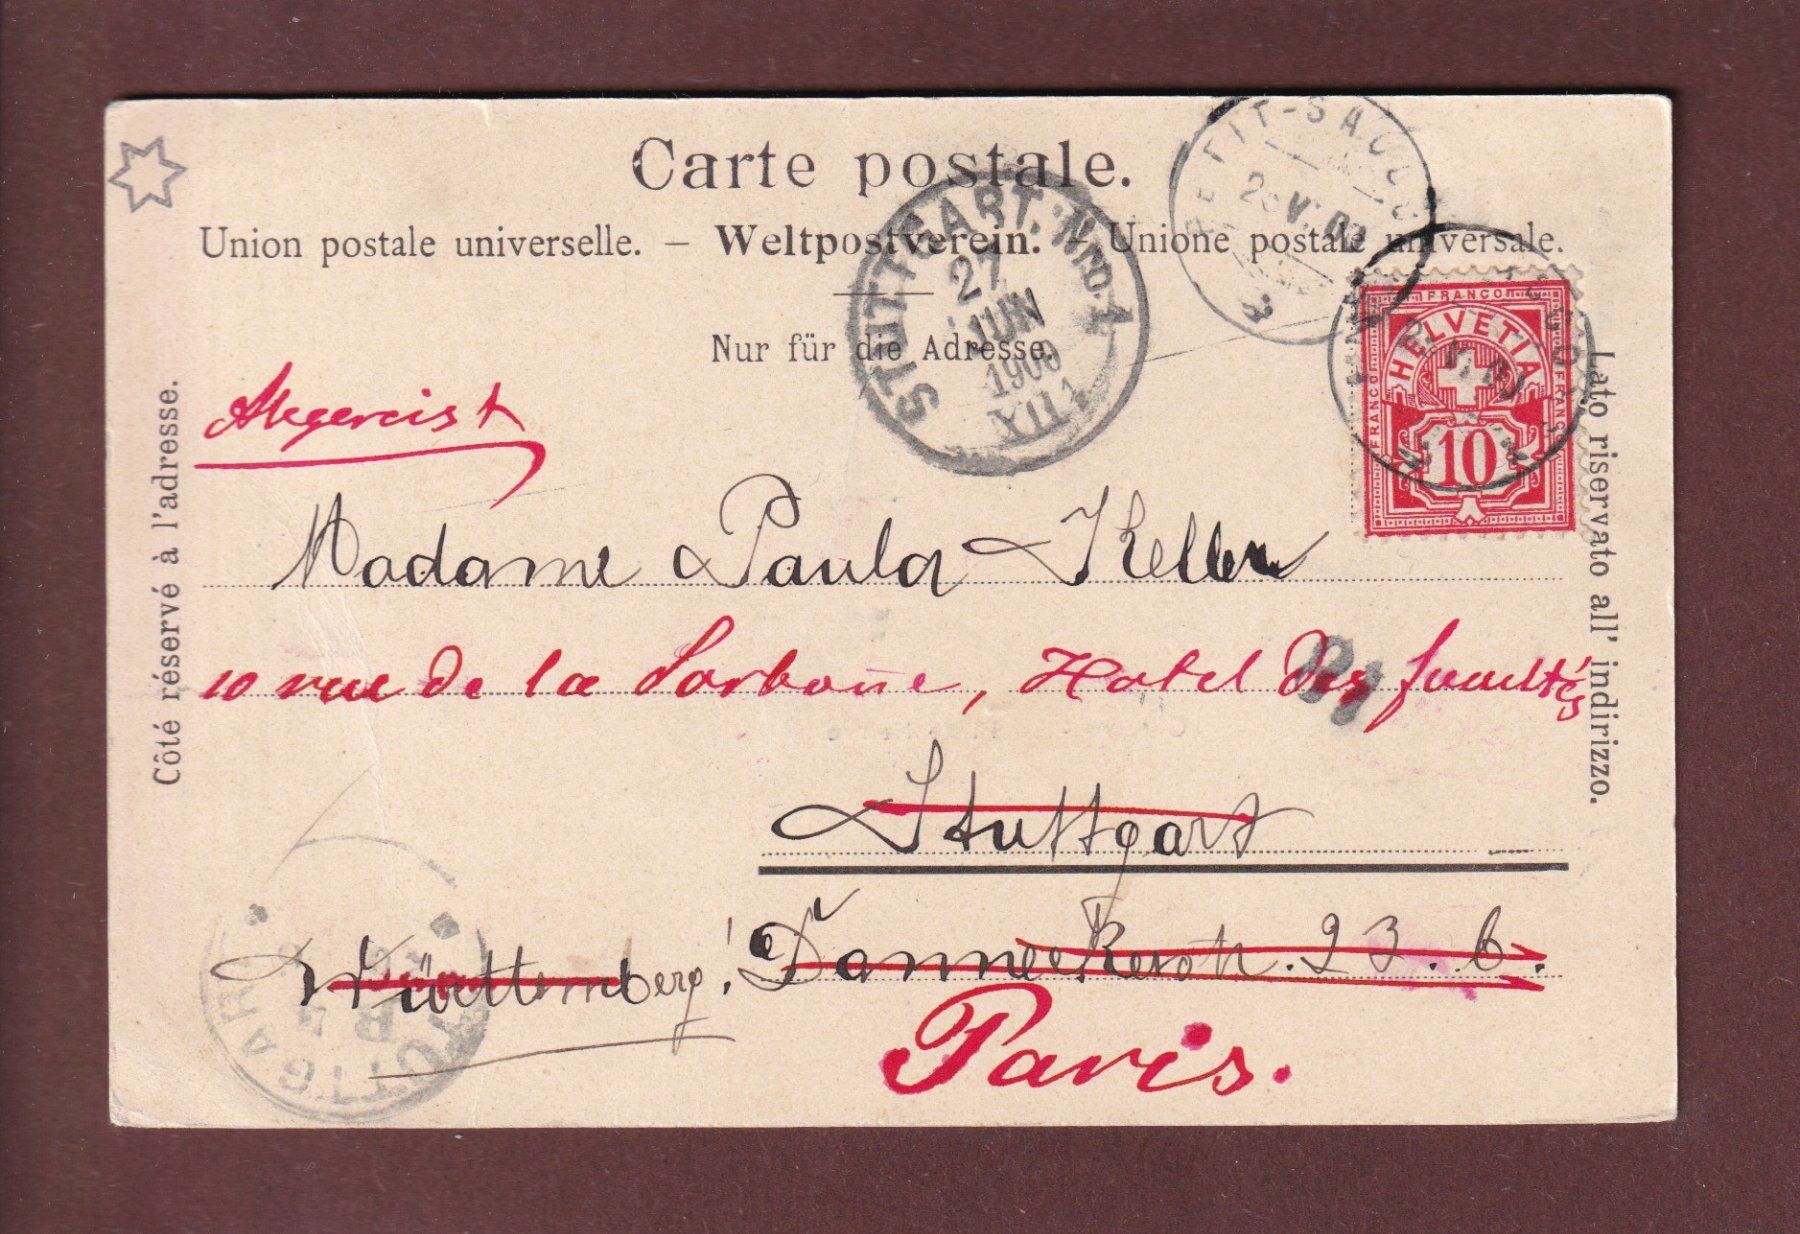 Carte postale.
Union postale universelle. – Weltpostverein. – Unione postale universale.
Nur für die Adresse.
Côté réservé à l'adresse.
Lato riservato all' indirizzo.
STUTTGART. No. 1
27
JUN
1900
PETIT-SACO
FRANCO
FRANCO
FRANCO
HELVETIA
10
Abgereist
Madame Paula Keller
10 rue de la Sorbonne, Hotel des facultés
Stuttgart
Württemberg! Danneckerstr. 23. b.
Paris.
STUTTGART